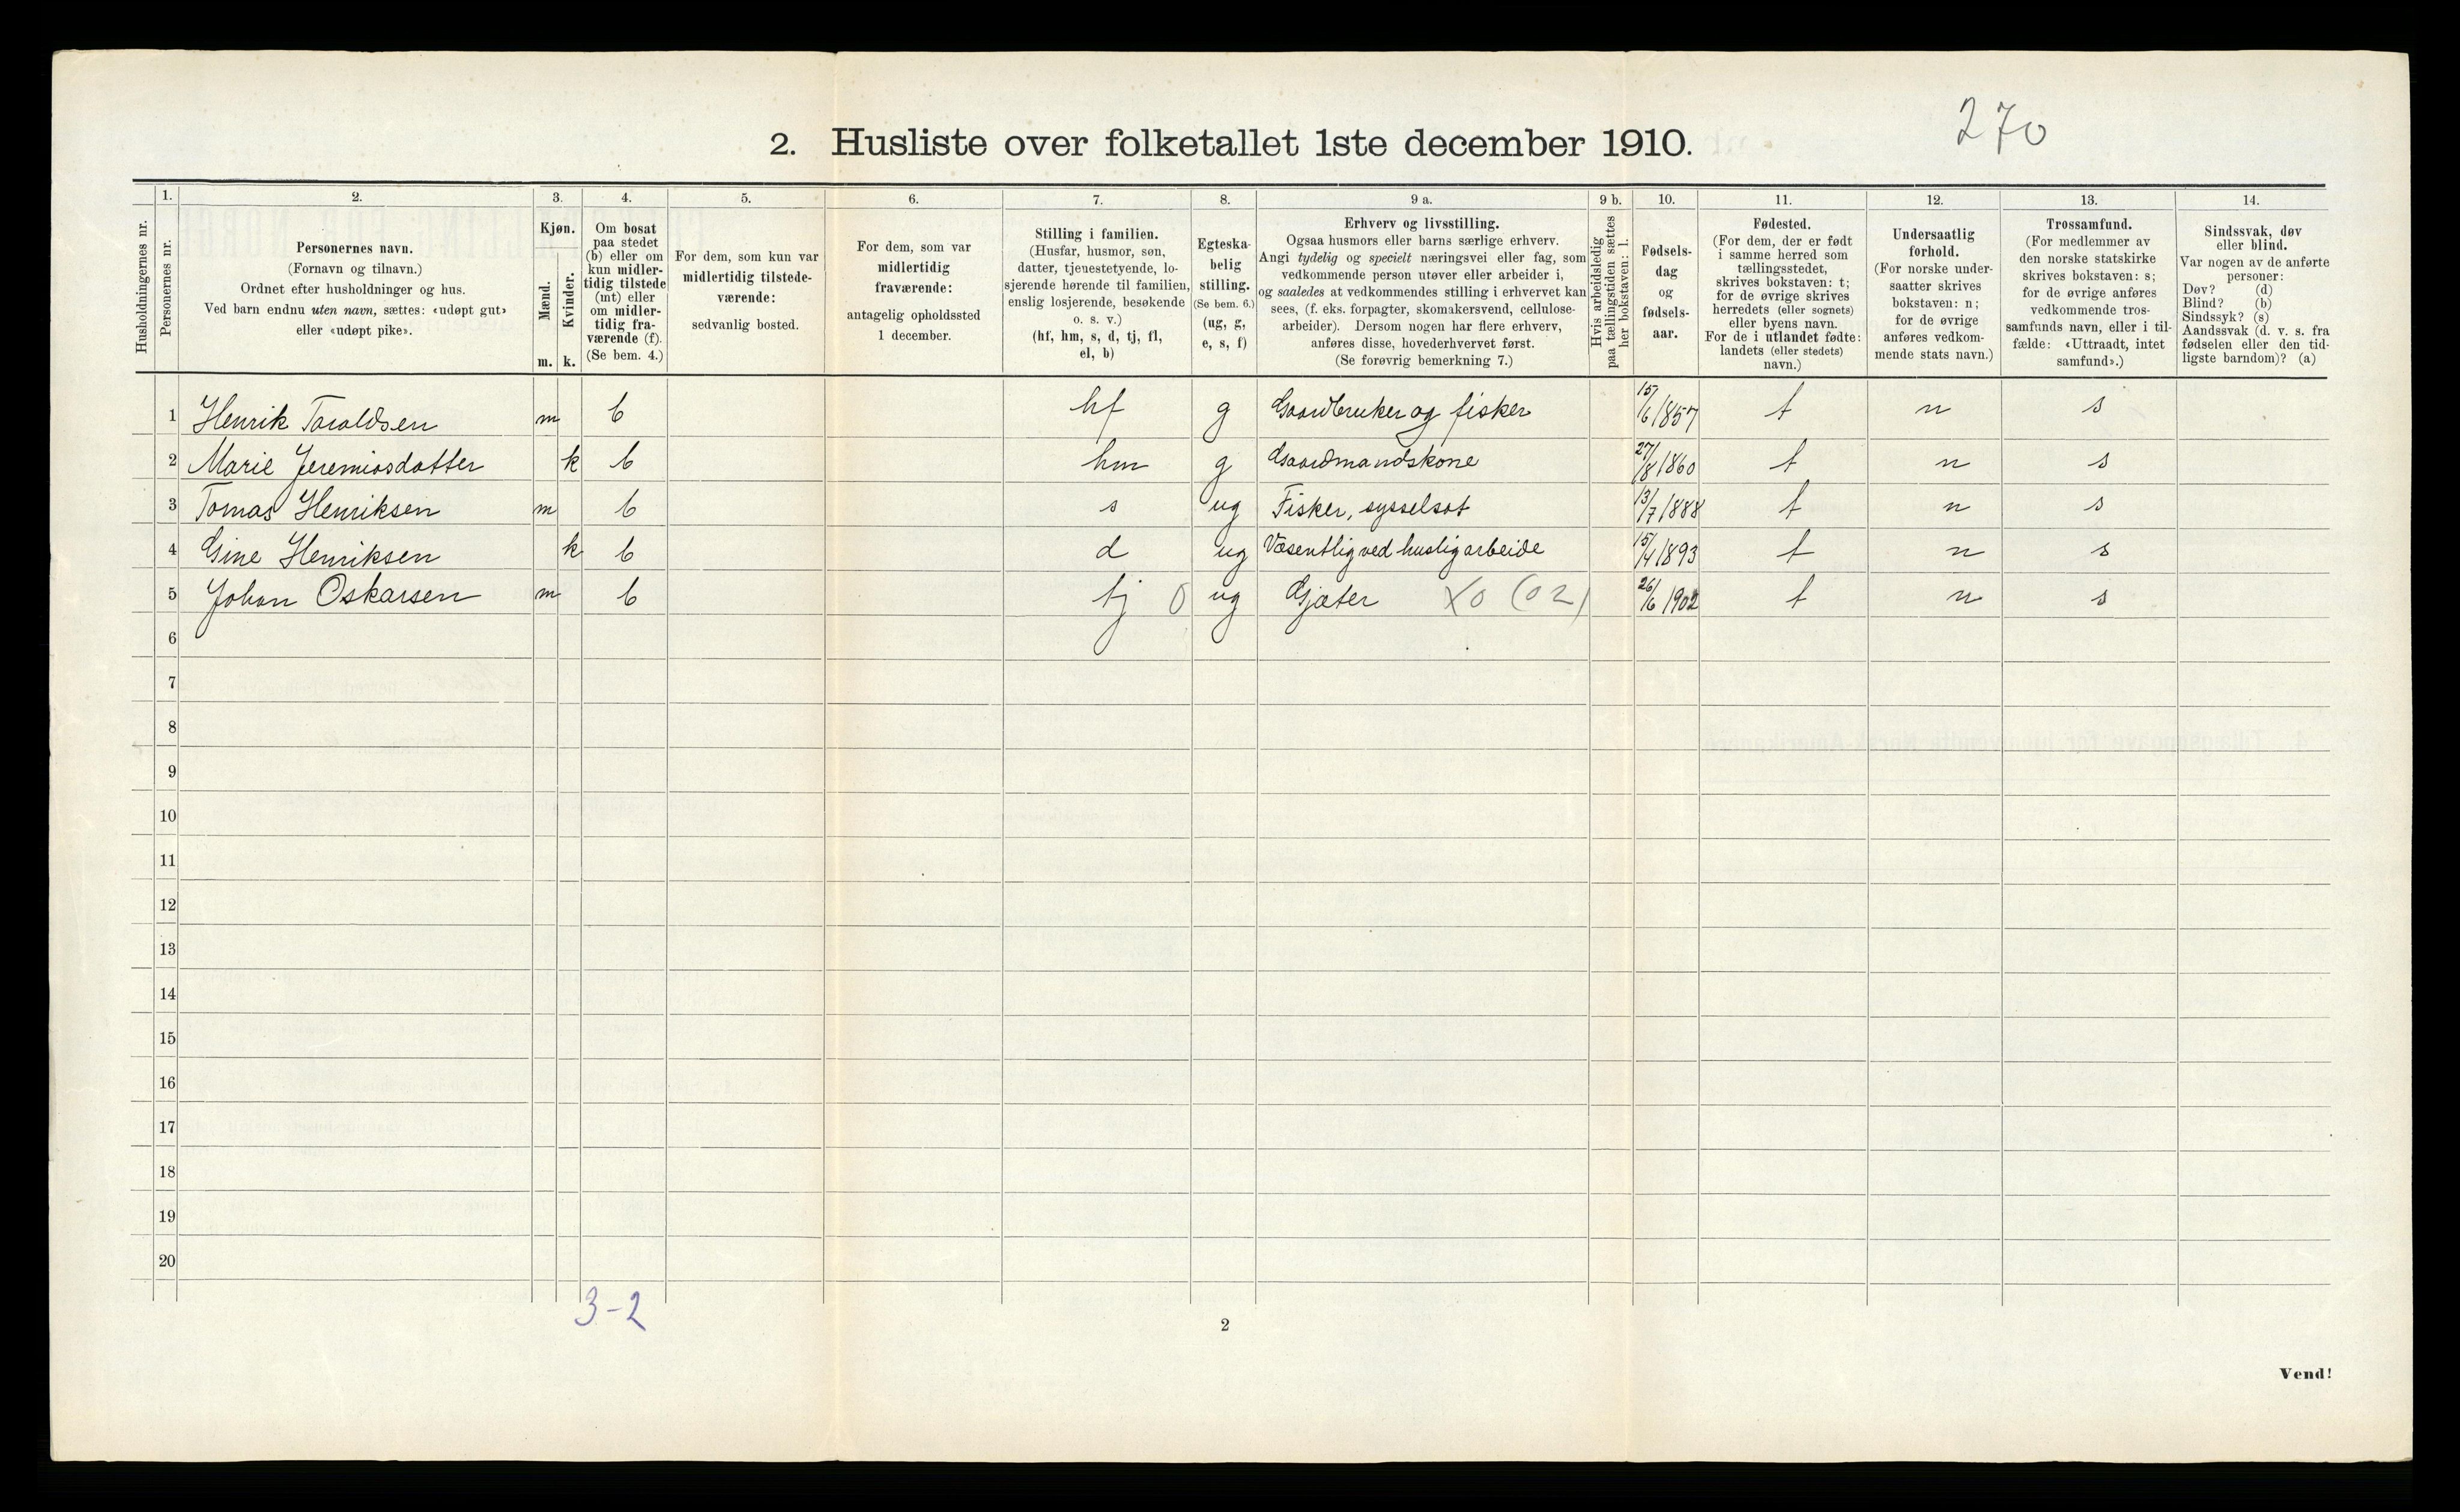 270
2. Husliste over folketallet 1ste december 1910.
Husholdningernes nr.
1. Personernes nr.
2. Personernes navn.
(Fornavn og tilnavn.)
Ordnet efter husholdninger og hus.
Ved barn endnu uten navn, sættes: «udøpt gut»
eller «udøpt pike».
3. Kjøn.
Mænd. m.
Kvinder. k.
4. Om bosat
paa stedet
(b) eller om
kun midler-
tidig tilstede
(mt) eller
om midler-
tidig fra-
værende (f).
(Se bem. 4.)
5. For dem, som kun var
midlertidig tilstede-
værende:
sedvanlig bosted.
6. For dem, som var
midlertidig
fraværende:
antagelig opholdssted
1 december.
7. Stilling i familien.
(Husfar, husmor, søn,
datter, tjenestetyende, lo-
sjerende hørende til familien,
enslig losjerende, besøkende
o. s. v.)
(hf, hm, s, d, tj, fl,
el, b)
8. Egteska-
belig
stilling.
(Se bem. 6.)
(ug, g,
e, s, f)
9 a. Erhverv og livsstilling.
Ogsaa husmors eller barns særlige erhverv.
Angi tydelig og specielt næringsvei eller fag, som
vedkommende person utøver eller arbeider i,
og saaledes at vedkommendes stilling i erhvervet kan
sees, (f. eks. forpagter, skomakersvend, cellulose-
arbeider). Dersom nogen har flere erhverv,
anføres disse, hovederhvervet først.
(Se forøvrig bemerkning 7.)
9 b. Hvis arbeidsledig
paa tællingstiden sættes
her bokstaven: l.
10. Fødsels-
dag
og
fødsels-
aar.
11. Fødested.
(For dem, der er født
i samme herred som
tællingsstedet,
skrives bokstaven: t;
for de øvrige skrives
herredets (eller sognets)
eller byens navn.
For de i utlandet fødte:
landets (eller stedets)
navn.)
12. Undersaatlig
forhold.
(For norske under-
saatter skrives
bokstaven: n;
for de øvrige
anføres vedkom-
mende stats navn.)
13. Trossamfund.
(For medlemmer av
den norske statskirke
skrives bokstaven: s;
for de øvrige anføres
vedkommende tros-
samfunds navn, eller i til-
fælde: «Uttraadt, intet
samfund».)
14. Sindssvak, døv
eller blind.
Var nogen av de anførte
personer:
Døv? (d)
Blind? (b)
Sindssyk? (s)
Aandssvak (d. v. s. fra
fødselen eller den tid-
ligste barndom)? (a)
1 Henrik Toraldsen m b hf g Gaardbruker og fisker 15/6 1857 t n s
2 Marie Jeremiasdatter k b hm g Gaardmandskone 27/8 1860 t n s
3 Tomas Henriksen m b s ug Fisker, sysselsat 13/7 1888 t n s
4 Gine Henriksen k b d ug Væsentlig ved huslig arbeide 15/4 1893 t n s
5 Johan Oskarsen m b tj 0 ug Gjæter X0 (02) 26/6 1902 t n s
6
7
8
9
10
11
12
13
14
15
16
17
18
19
20
3-2
2
Vend!